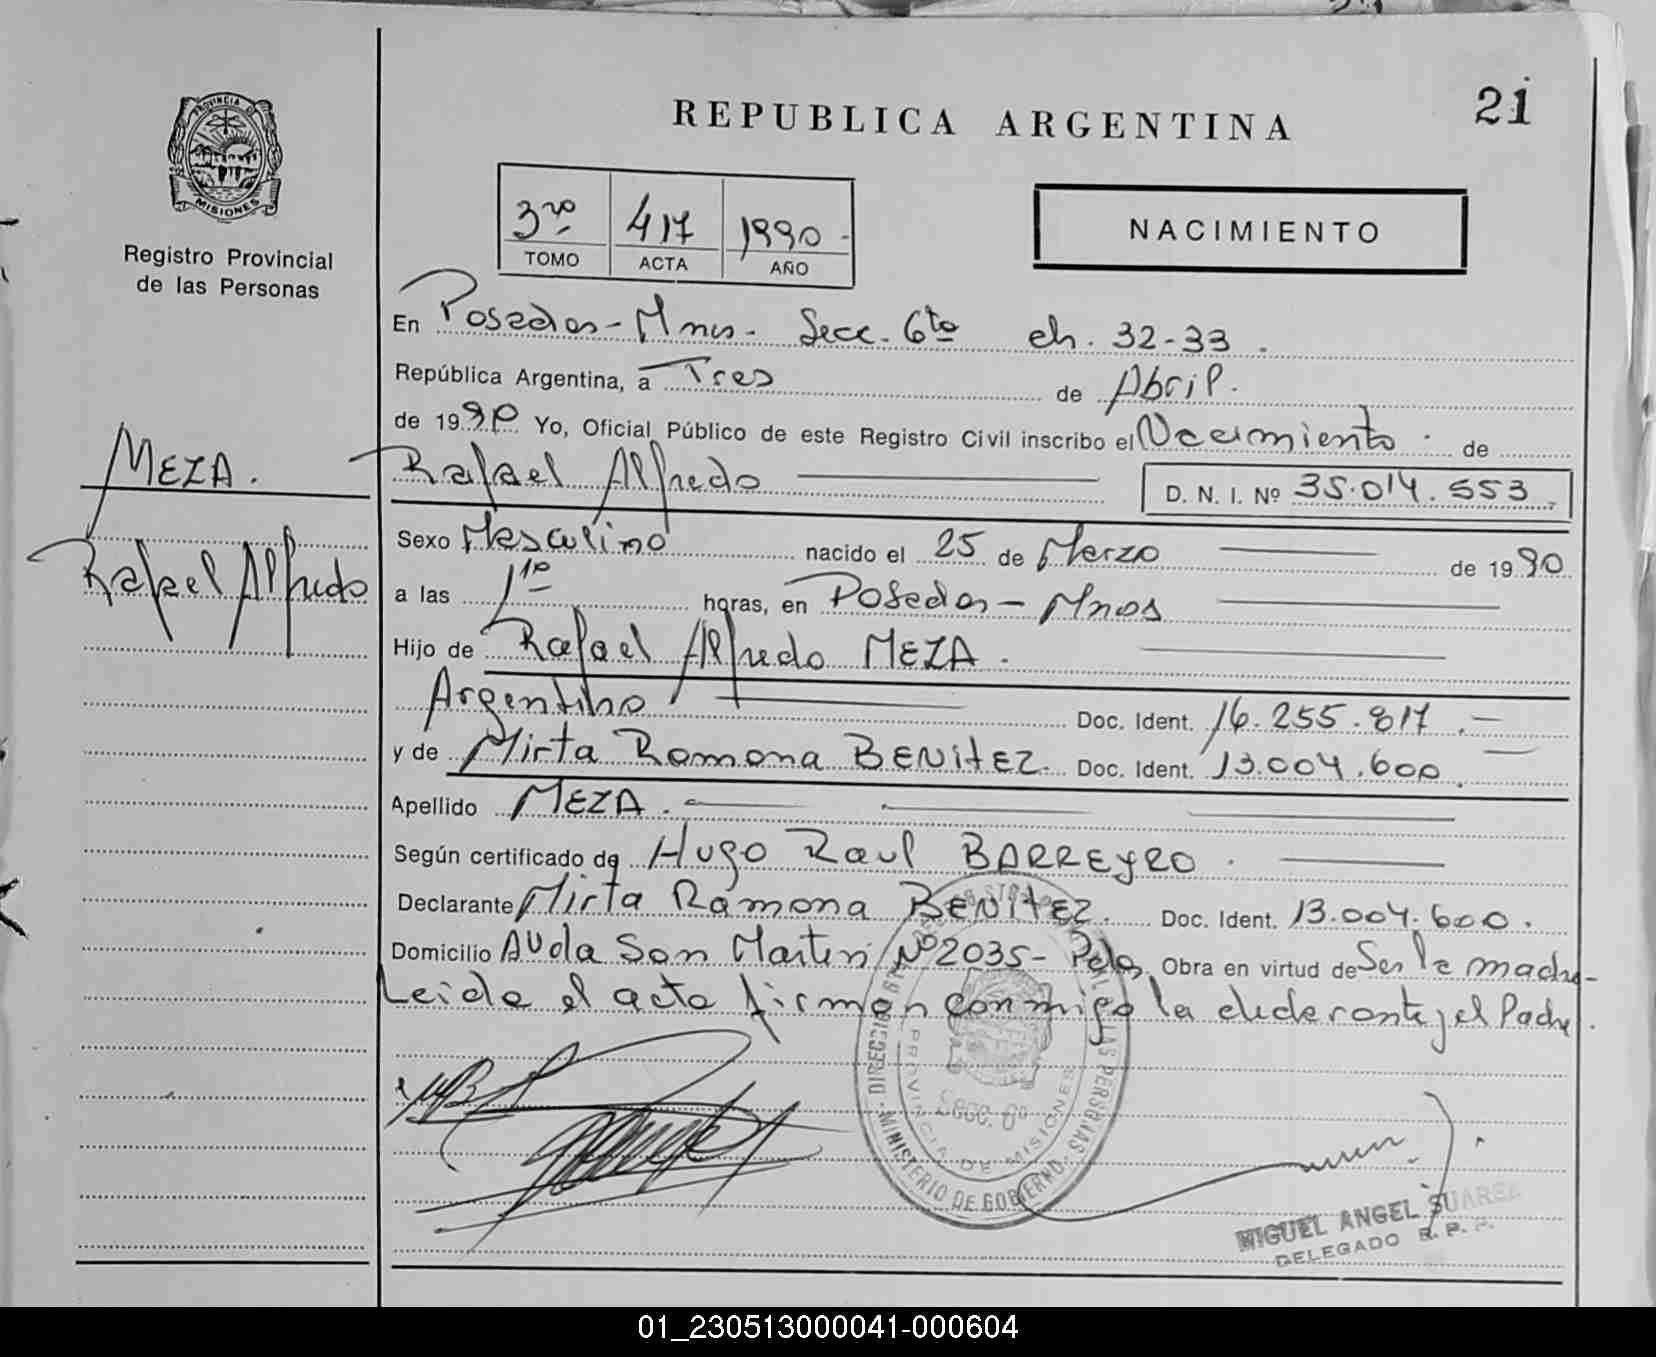 21
REPUBLICA ARGENTINA
PROVINCIA DE
MISIONES
Registro Provincial
de las Personas
3ro 417 1990
TOMO ACTA AÑO
NACIMIENTO
En Posadas - Mnes - Secc. 6ta ch. 32-33.
República Argentina, a Tres de Abril.
de 1990 Yo, Oficial Público de este Registro Civil inscribo el Nacimiento de
MEZA.
Rafael Alfredo
Rafael Alfredo D. N. I. Nº 35.014.553
Sexo Masculino nacido el 25 de Marzo de 1990
a las 1 10 horas, en Posadas - Mnes
Hijo de Rafael Alfredo MEZA.
Argentino Doc. Ident. 16.255.817.
y de Mirta Ramona BENITEZ. Doc. Ident. 13.004.600.
Apellido MEZA.
Según certificado de Hugo Raul BARREYRO.
Declarante Mirta Ramona BENITEZ. Doc. Ident. 13.004.600.
Domicilio Avda San Martin Nº 2035 - Pdas. Obra en virtud de Ser la madre -
Leida el acta firman conmigo la declarante y el Padre.
MINISTERIO DE GOBIERNO
PROVINCIA DE MISIONES
MIGUEL ANGEL SUAREZ
DELEGADO R. P. P.
01_230513000041-000604